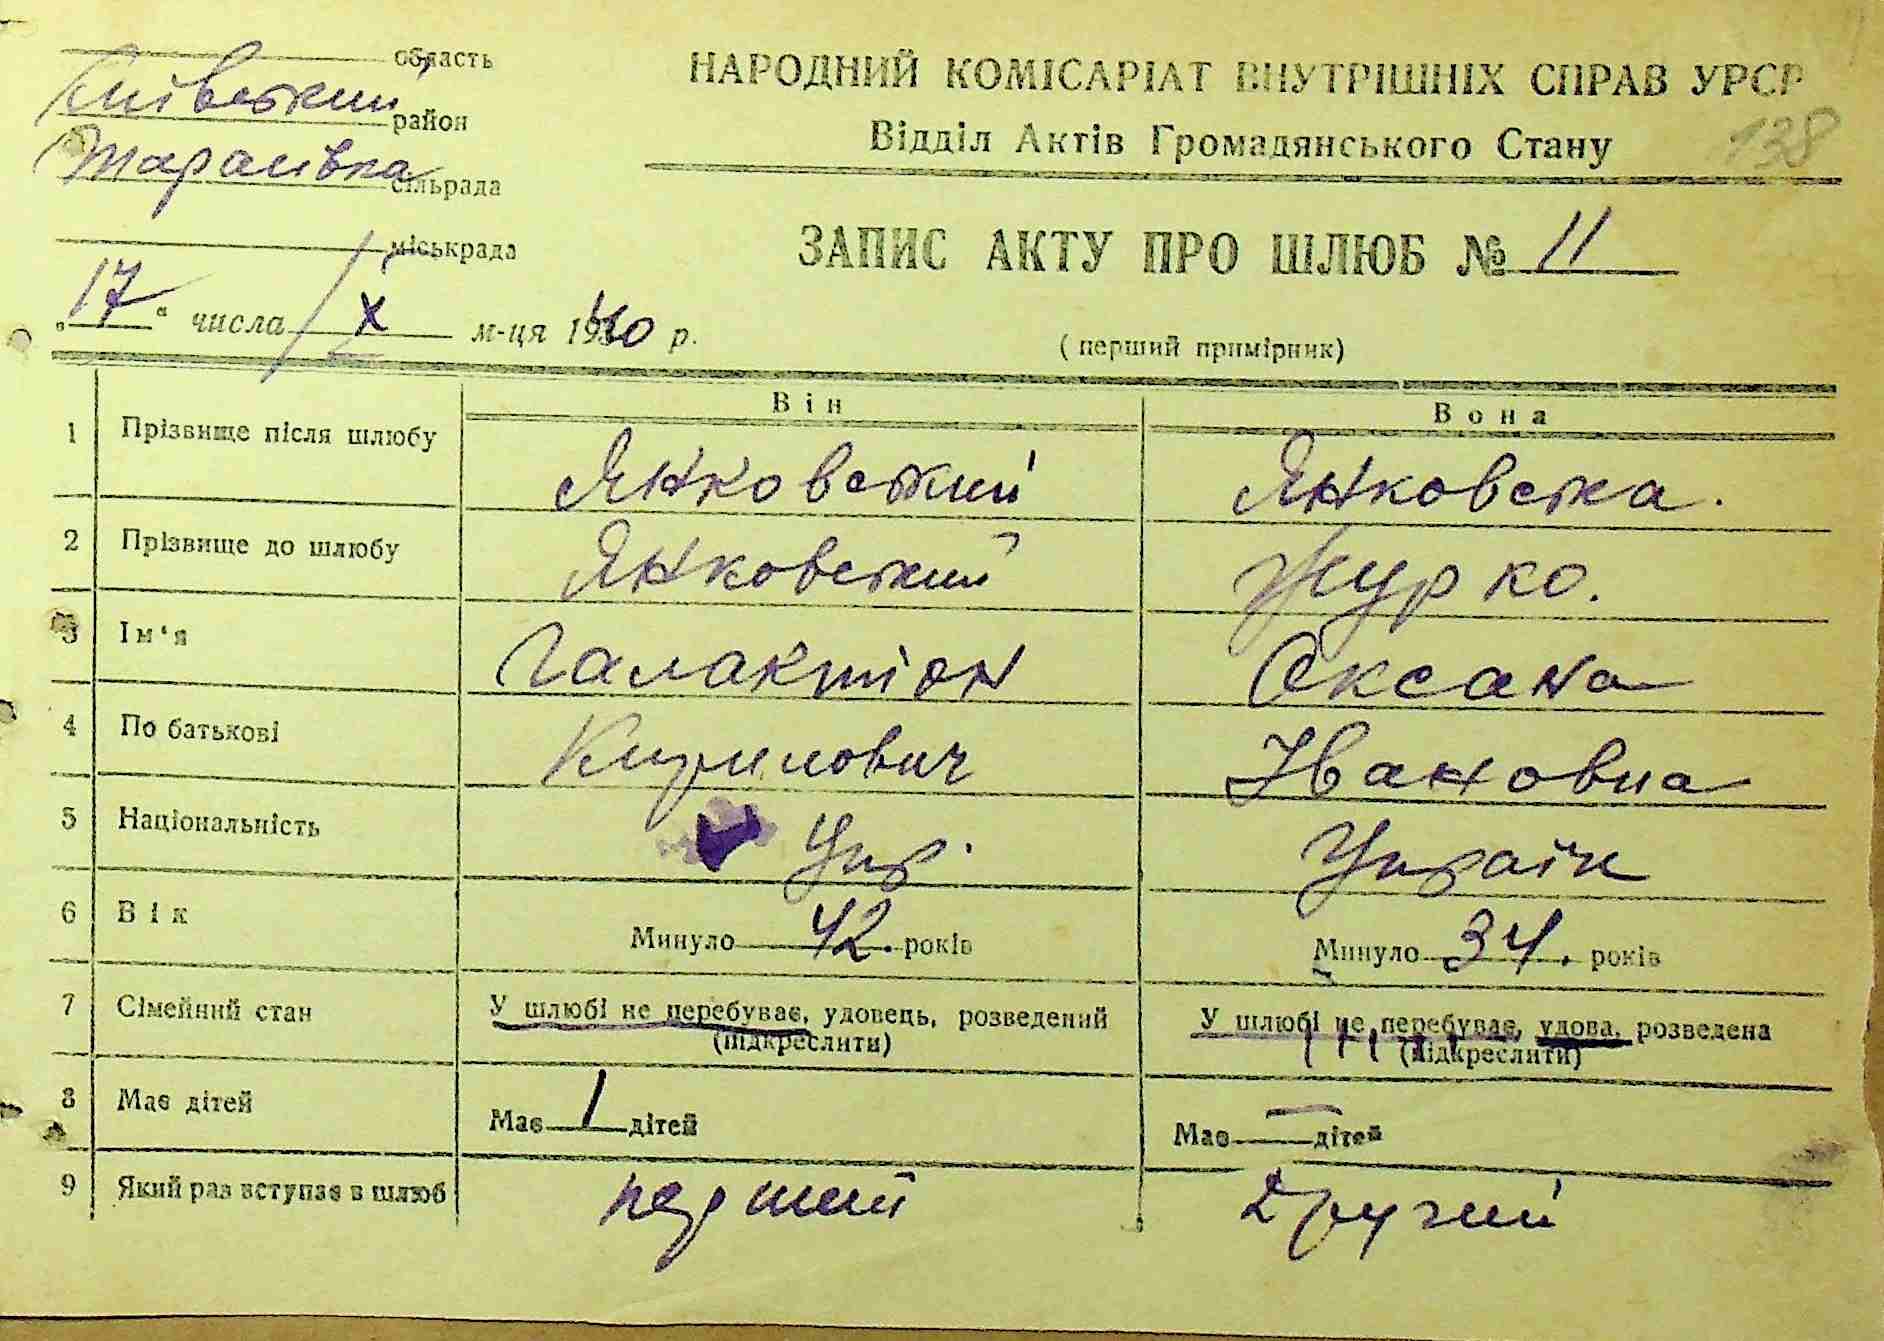 область
Київський район
Тарасівка сільрада
міськрада
„17“ числа X м-ця 1940 р.
НАРОДНИЙ КОМІСАРІАТ ВНУТРІШНІХ СПРАВ УРСР
Відділ Актів Громадянського Стану 138
ЗАПИС АКТУ ПРО ШЛЮБ № 11
(перший примірник)
Він Вона
1 Прізвище після шлюбу Янковський Янковська.
2 Прізвище до шлюбу Янковський Журко.
3 Ім‘я Галактіон Оксана
4 По батькові Кирилович Івановна
5 Національність Укр. Україн
6 Вік Минуло 42. років Минуло 34. років
7 Сімейний стан У шлюбі не перебуває, удовець, розведений У шлюбі не перебуває, удова, розведена
(підкреслити) (підкреслити)
8 Має дітей Має 1 дітей Має — дітей
9 Який раз вступає в шлюб перший другий